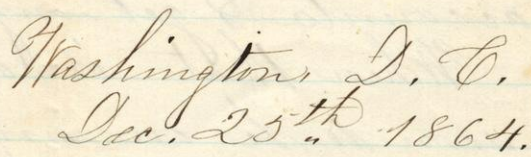 Washington, D. C.
Dec. 25th 1864.